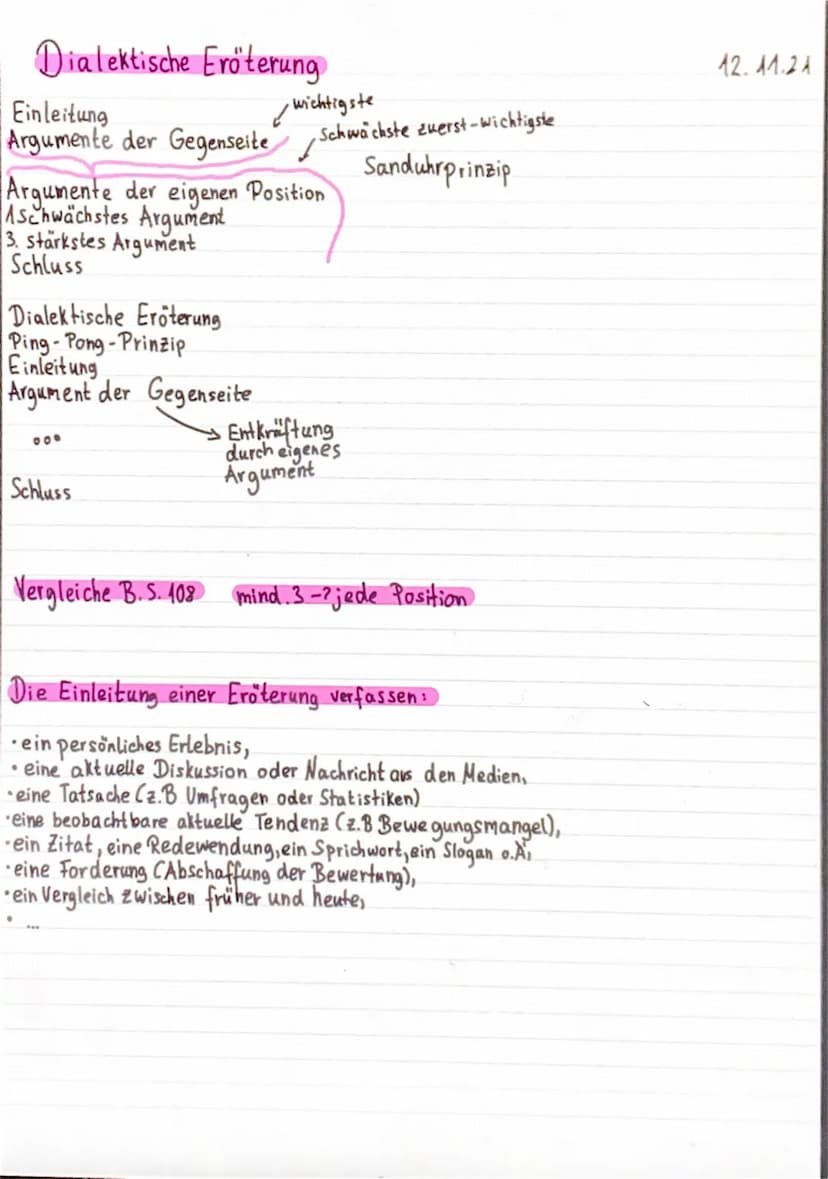 Dialektische Eröterung
12.11.21
Einleitung
wichtigste
Argumente der Gegenseite
Schwächste zuerst-wichtigste
Sanduhrprinzip
Argumente der eigenen Position
1 Schwächstes Argument
3. stärkstes Argument
Schluss
Dialektische Eröterung
Ping-Pong-Prinzip
Einleitung
Argument der Gegenseite
... Entkräftung
durch eigenes
Argument
Schluss
Vergleiche B. S. 108 mind. 3 -? jede Position
Die Einleitung einer Eröterung verfassen:
· ein persönliches Erlebnis,
· eine aktuelle Diskussion oder Nachricht aus den Medien,
· eine Tatsache (z.B Umfragen oder Statistiken)
· eine beobachtbare aktuelle Tendenz (z.B Bewegungsmangel),
· ein Zitat, eine Redewendung, ein Sprichwort, ein Slogan o.Ä,
· eine Forderung (Abschaffung der Bewertung),
· ein Vergleich zwischen früher und heute,
· ...